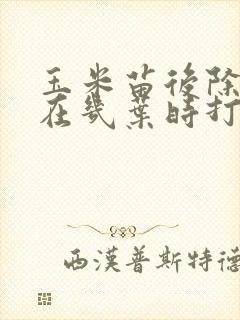 玉米苗後除
在幾葉時打
西漢普斯特德